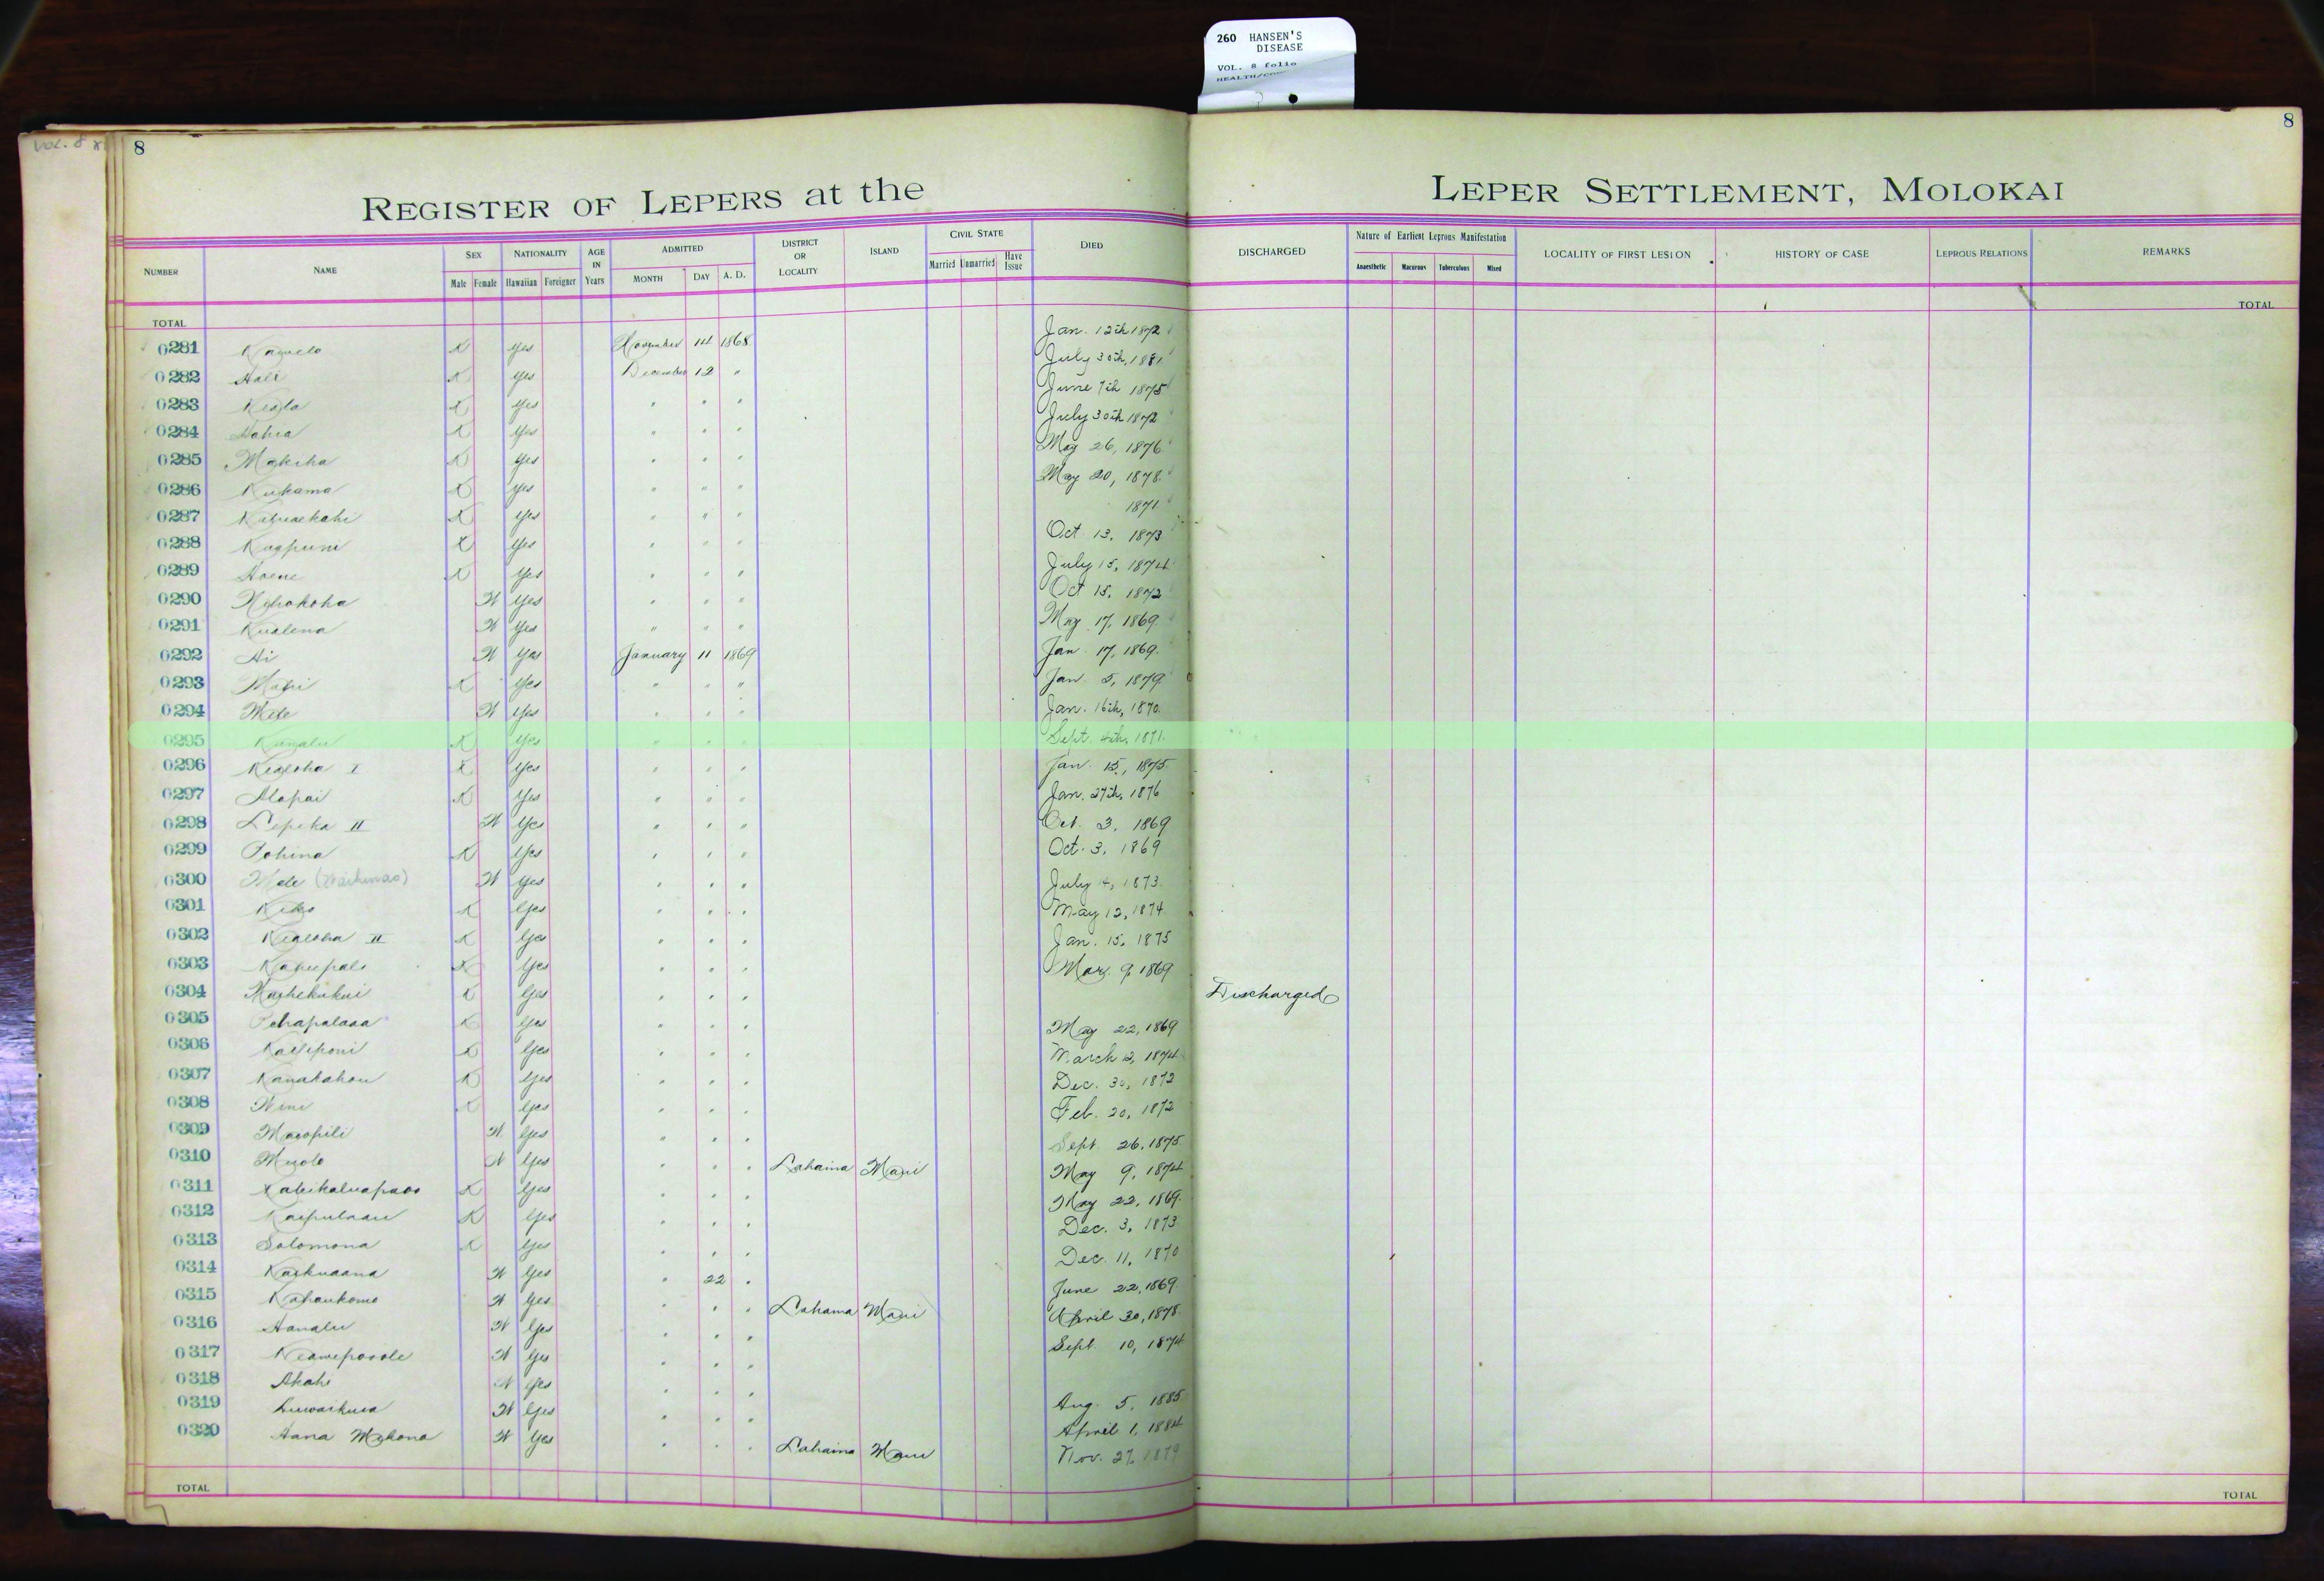 260 HANSEN'S
DISEASE
VOL. 8 folio
VOL. 8
8
8
REGISTER OF LEPERS at the LEPER SETTLEMENT, MOLOKAI
NUMBER NAME SEX Male Female NATIONALITY Hawaiian Foreigner AGE IN Years ADMITTED MONTH DAY A. D. DISTRICT OR LOCALITY ISLAND CIVIL STATE Married Unmarried Have Issue DIED DISCHARGED Nature of Earliest Leprous Manifestation Anaesthetic Macurous Tuberculous Mixed LOCALITY OF FIRST LESION HISTORY OF CASE LEPROUS RELATIONS REMARKS
TOTAL TOTAL
0281 K Yes November 14 1868 Jan. 12th 1872
0282 Hali K Yes December 12 " July 30th, 1881
0283 K Yes " " " June 7th 1875
0284 K Yes " " " July 30th 1872
0285 Makeha K Yes " " " May 26, 1876
0286 Kukama K Yes " " " May 20, 1878
0287 K Yes " " " 1871
0288 Kaapuni K Yes " " " Oct. 13, 1873
0289 Hoene K Yes " " " July 15, 1874
0290 W Yes " " " Oct 15, 1872
0291 Kualena W Yes " " " May 17, 1869
0292 Ai W Yes January 11 1869 Jan. 17, 1869
0293 K Yes " " " Jan. 5, 1879
0294 Mele W Yes " " " Jan. 16th, 1870
0295 Kanalu K Yes " " " Sept. 4th, 1871
0296 Kealoha I K Yes " " " Jan. 15, 1875
0297 Alapai K Yes " " " Jan. 27th, 1876
0298 Lepeka II W Yes " " " Oct. 3, 1869
0299 Pohina K Yes " " " Oct. 3, 1869
0300 Mele W Yes " " " July 14, 1873
0301 K Yes " " " May 12, 1874
0302 Kealoha II K Yes " " " Jan. 15, 1875
0303 K Yes " " " Mar. 9, 1869
0304 K Yes " " " Discharged
0305 K Yes " " " May 22, 1869
0306 Kailiponi K Yes " " " March 12, 1874
0307 Kanakahou K Yes " " " Dec. 30, 1872
0308 Wini K Yes " " " Feb. 20, 1872
0309 Maiopili W Yes " " " Sept. 26, 1875
0310 W Yes " " " Lahaina Maui May 9, 1874
0311 K Yes " " " May 22, 1869
0312 K Yes " " " Dec. 3, 1873
0313 Solomona K Yes " " " Dec. 11, 1870
0314 Kaikuaana W Yes " 22 " June 22, 1869
0315 W Yes " " " Lahaina Maui April 30, 1878
0316 Hanalu W Yes " " " Sept. 10, 1874
0317 W Yes " " "
0318 Akahi W Yes " " " Aug. 5, 1885
0319 W Yes " " " April 1, 1884
0320 Hana W Yes " " " Lahaina Maui Nov. 27, 1879
TOTAL TOTAL